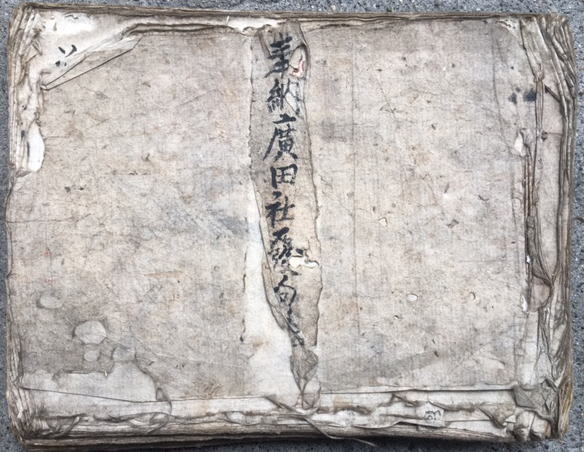 奉納廣田社發句